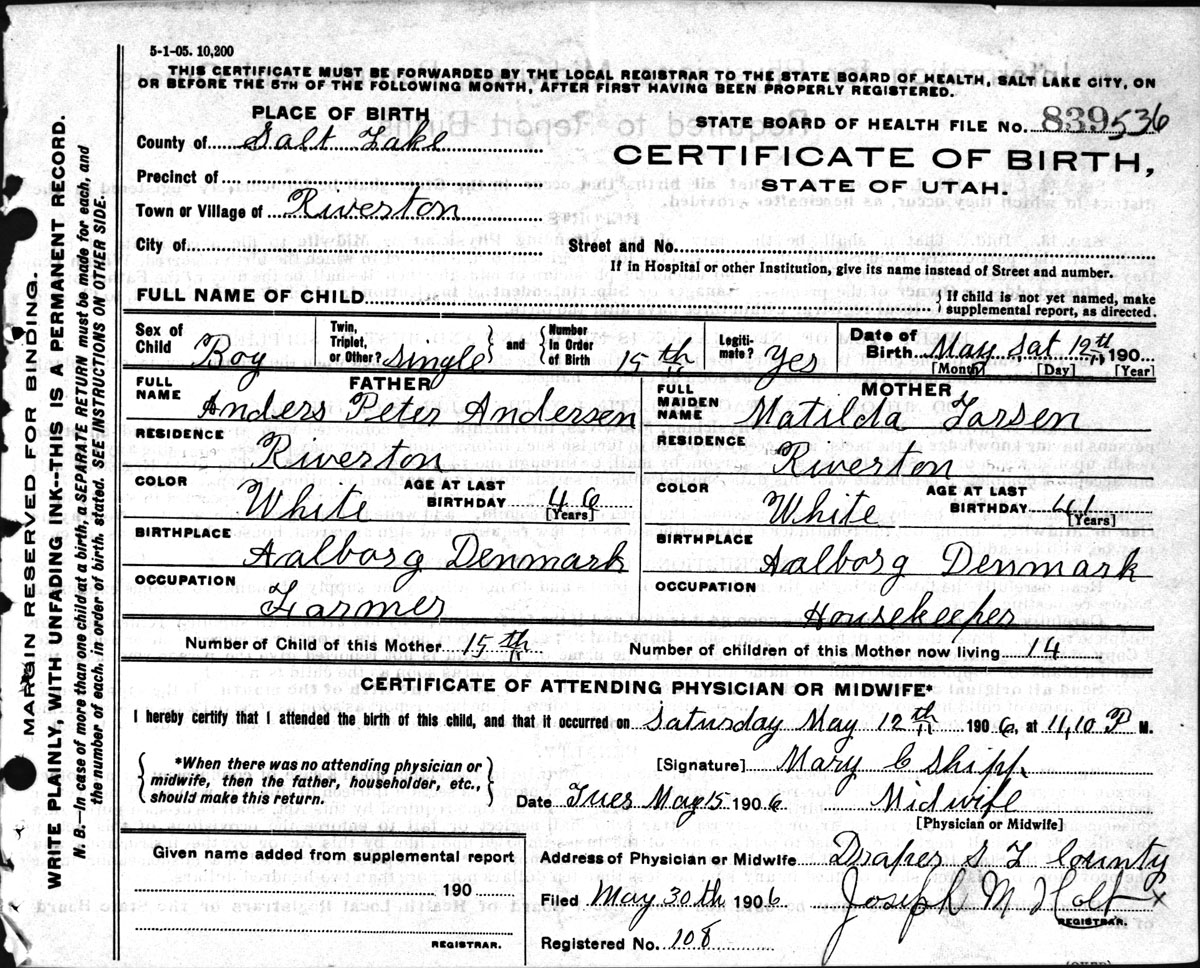 5-1-05. 10,200
THIS CERTIFICATE MUST BE FORWARDED BY THE LOCAL REGISTRAR TO THE STATE BOARD OF HEALTH, SALT LAKE CITY, ON
OR BEFORE THE 5TH OF THE FOLLOWING MONTH, AFTER FIRST HAVING BEEN PROPERLY REGISTERED.
PLACE OF BIRTH
STATE BOARD OF HEALTH FILE No. 839536
County of Salt Lake
CERTIFICATE OF BIRTH,
STATE OF UTAH.
Precinct of
Town or Village of Riverton
City of Street and No.
If in Hospital or other Institution, give its name instead of Street and number.
FULL NAME OF CHILD. { If child is not yet named, make supplemental report, as directed.
Sex of Child Boy Twin, Triplet, or Other? Single } and { Number in Order of Birth 15th Legitimate? Yes Date of Birth May Sat 12th 190
[Month] [Day] [Year]
FATHER
FULL NAME Anders Peter Andersen
RESIDENCE Riverton
COLOR White AGE AT LAST BIRTHDAY 46 [Years]
BIRTHPLACE Aalborg Denmark
OCCUPATION Farmer
MOTHER
FULL MAIDEN NAME Matilda Larsen
RESIDENCE Riverton
COLOR White AGE AT LAST BIRTHDAY 41 [Years]
BIRTHPLACE Aalborg Denmark
OCCUPATION Housekeeper
Number of Child of this Mother 15th Number of children of this Mother now living 14
CERTIFICATE OF ATTENDING PHYSICIAN OR MIDWIFE*
I hereby certify that I attended the birth of this child, and that it occurred on Saturday May 12th 1906, at 11,10 P M.
{ *When there was no attending physician or midwife, then the father, householder, etc., should make this return. }
[Signature] Mary C Shipp.
Date Tues May 15 1906 Midwife
[Physician or Midwife]
Given name added from supplemental report
190
REGISTRAR.
Address of Physician or Midwife Draper S L County
Filed May 30th 1906 Joseph M Holt X
REGISTRAR.
Registered No. 108
MARGIN RESERVED FOR BINDING.
WRITE PLAINLY, WITH UNFADING INK--THIS IS A PERMANENT RECORD.
N. B.—In case of more than one child at a birth, a SEPARATE RETURN must be made for each, and
the number of each, in order of birth, stated. SEE INSTRUCTIONS ON OTHER SIDE.